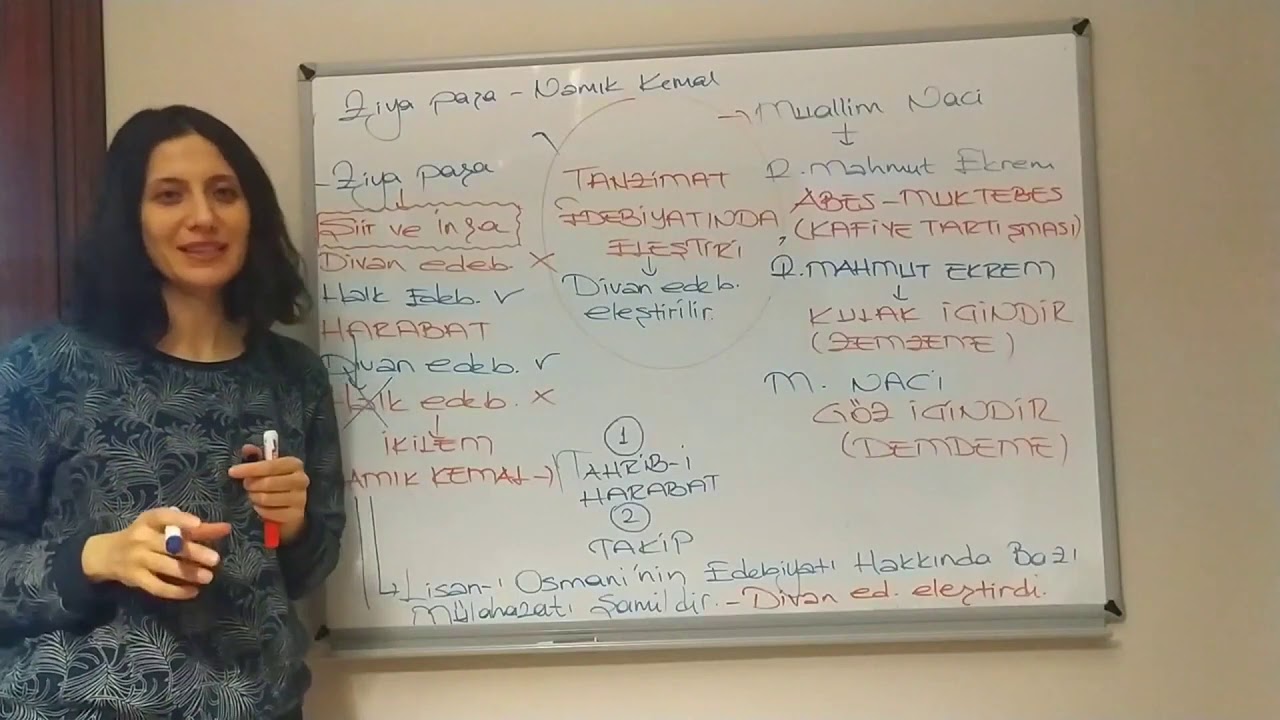 Ziya paşa - Namık Kemal
- Ziya paşa
Şiir ve inşa
Divan edeb. X
Halk Edeb. ✓
HARABAT
Divan edeb. ✓
Halk edeb. X
İKİLEM
AMIK KEMAL →
TANZİMAT
EDEBİYATINDA
ELEŞTİRİ
Divan edeb.
eleştirilir.
① 
TAHRİB-İ
HARABAT
②
TAKİP
→ Muallim Naci
R. Mahmut Ekrem
ABES-MUKTEBES
(KAFİYE TARTIŞMASI)
R. MAHMUT EKREM
KULAK İÇİNDİR
(ZEMZEME)
M. NACİ
GÖZ İÇİNDİR
(DEMDEME)
Lisan-ı Osmani'nin Edebiyatı Hakkında Bazı
Mülahazatı Şamildir. - Divan ed. eleştirdi.